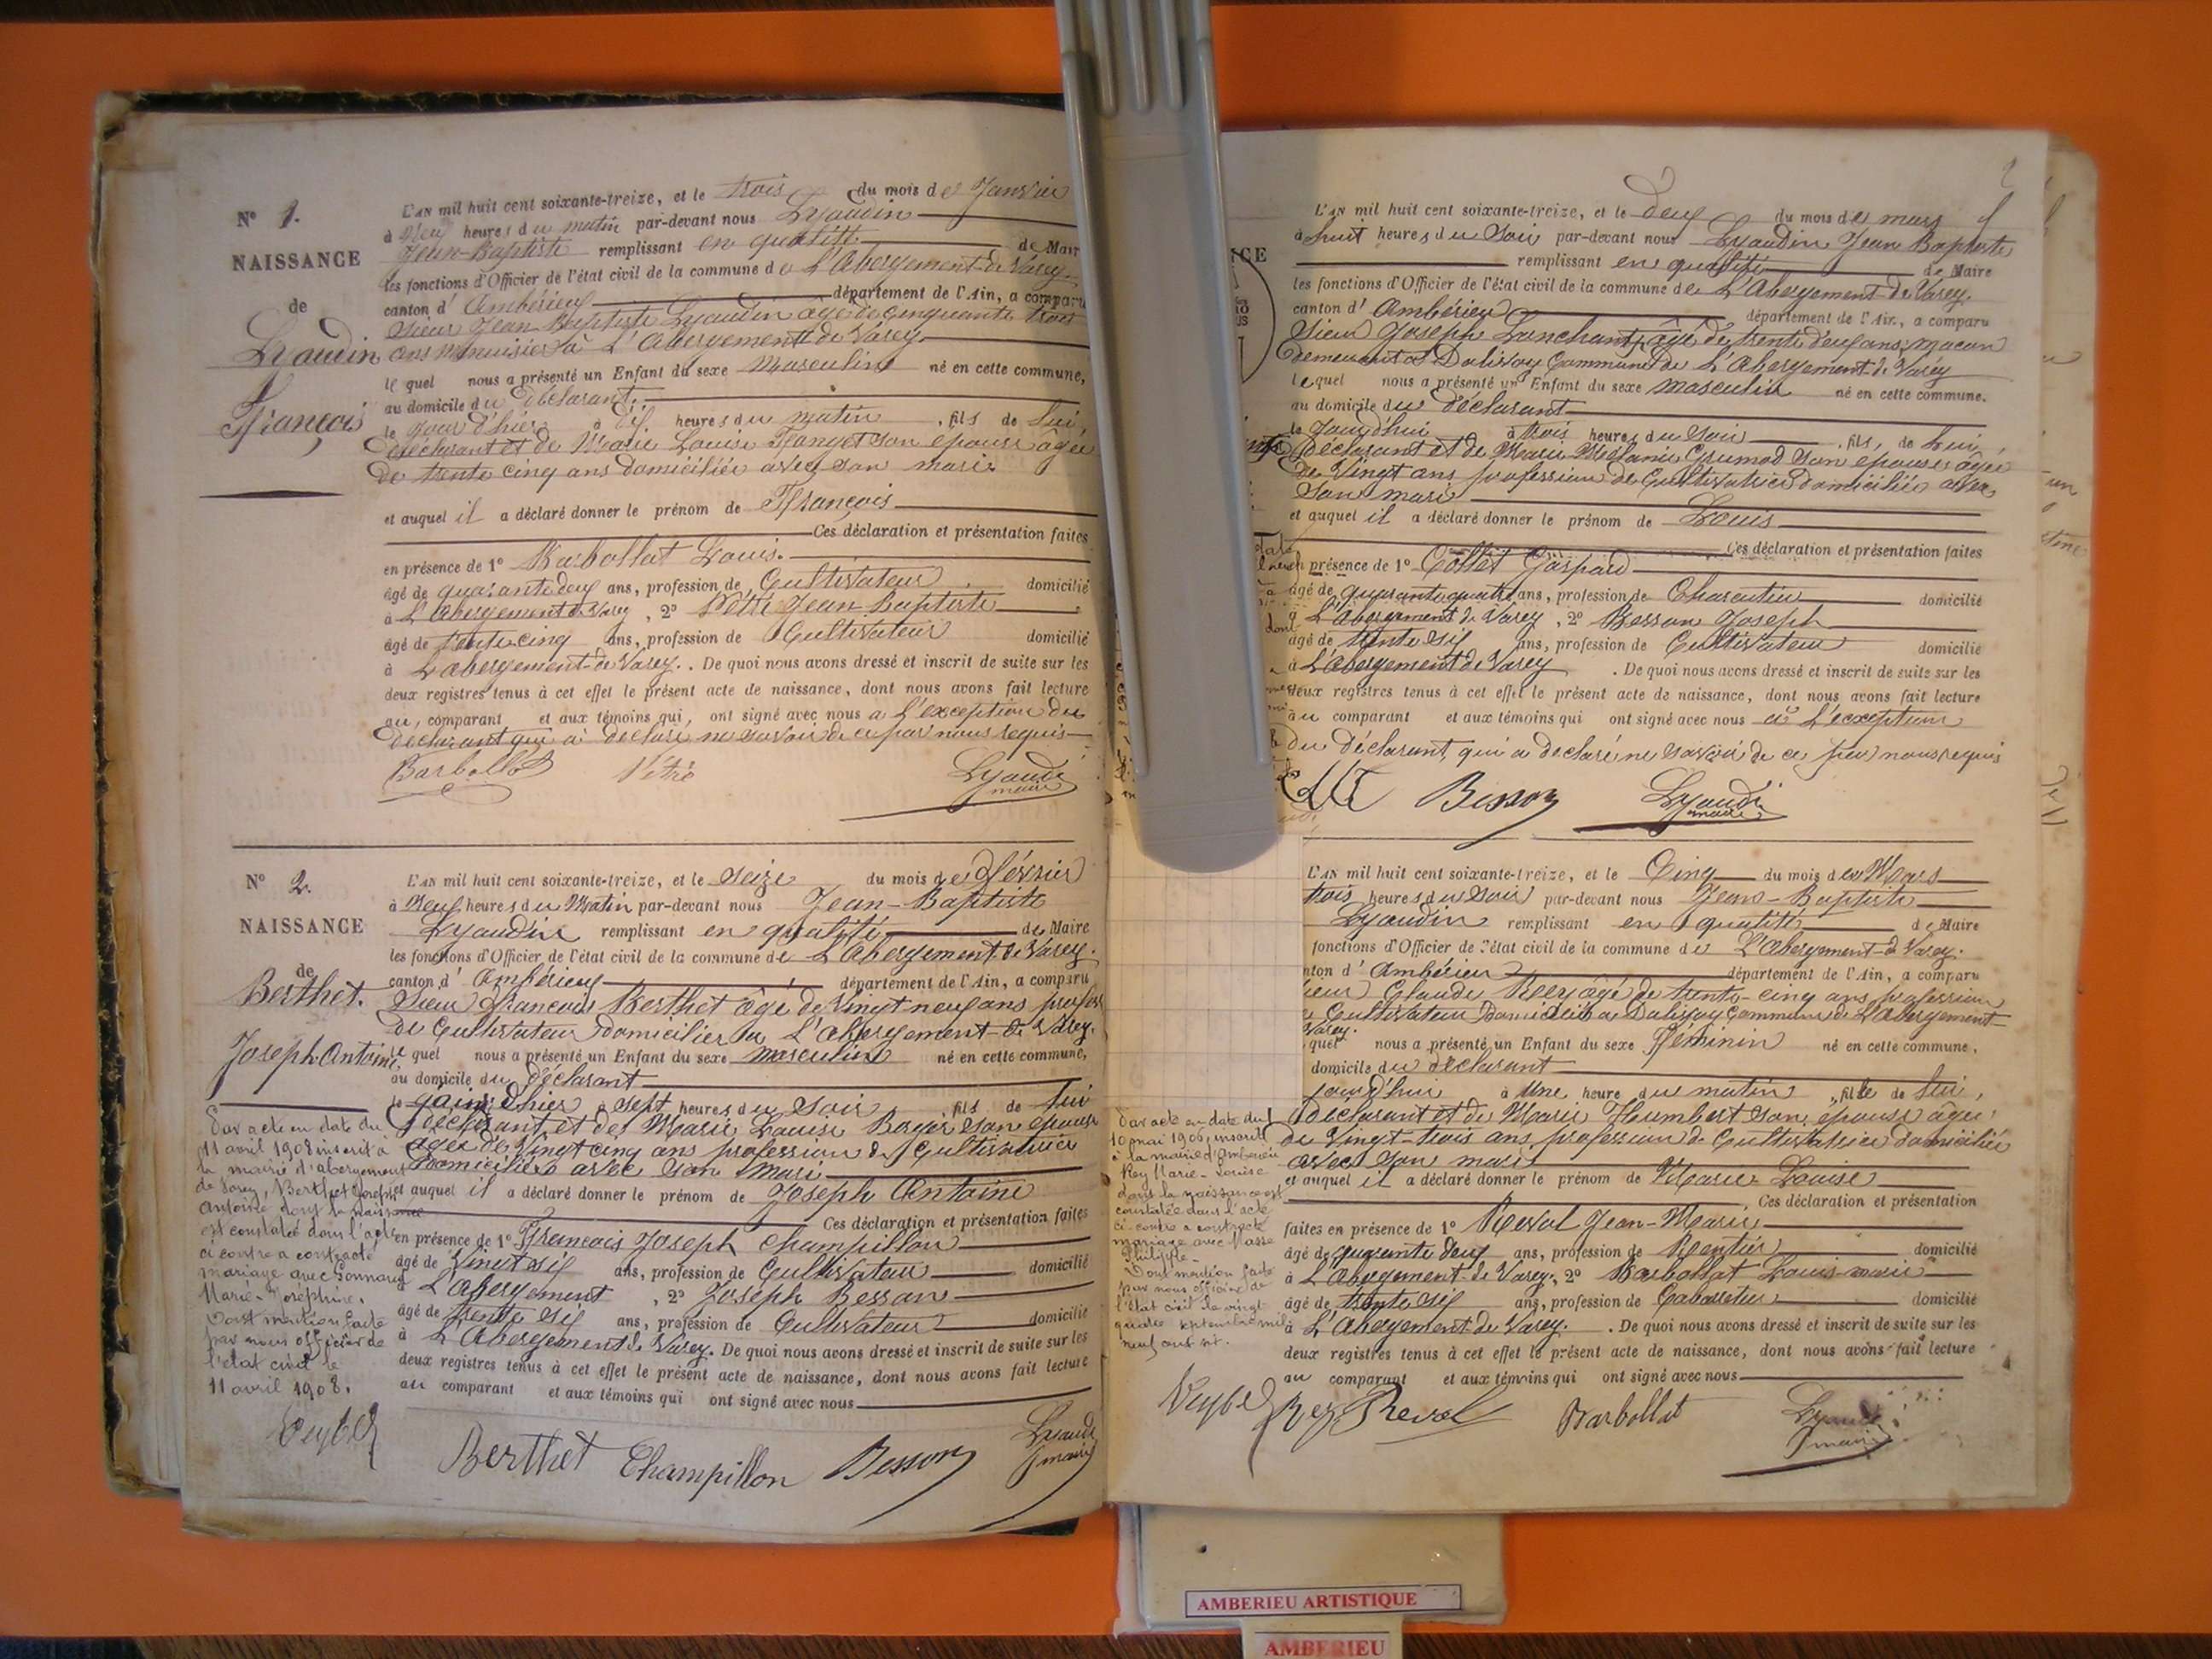 N° 1.
NAISSANCE
de
Lyaudin
François
L'AN mil huit cent soixante-treize, et le trois du mois de Janvier
à heures du matin par-devant nous Lyaudin
Jean-Baptiste remplissant en qualité de Mair
les fonctions d'Officier de l'état civil de la commune de L'Abergement-de Varey
canton d'Ambérieu département de l'Ain, a comparu
Sieur Jean Baptiste Lyaudin âgé de cinquante trois
ans Menuisier à L'Abergement de Varey
le quel nous a présenté un Enfant du sexe Masculin né en cette commune,
au domicile du déclarant
le jour d'hier à dix heures du matin, fils de lui,
déclarant et de Marie Louise son épouse âgée
de trente cinq ans domiciliée avec son mari
et auquel il a déclaré donner le prénom de François
Ces déclaration et présentation faites
en présence de 1° Barbollat Louis.
âgé de quarante deux ans, profession de Cultivateur domicilié
à L'Abergement de Varey, 2° Jean-Baptiste
âgé de trente cinq ans, profession de Cultivateur domicilié
à L'abergement-de Varey. De quoi nous avons dressé et inscrit de suite sur les
deux registres tenus à cet effet le présent acte de naissance, dont nous avons fait lecture
au, comparant et aux témoins qui, ont signé avec nous a l'exception du
déclarant qui a déclaré ne savoir de ce par nous requis
Barbollat Lyaudi
maire
N° 2.
NAISSANCE
de
Berthet.
Joseph Antoine
L'AN mil huit cent soixante-treize, et le seize du mois de Février
à Neuf heures du Matin par-devant nous Jean-Baptiste
Lyaudin remplissant en qualité de Maire
les fonctions d'Officier de l'état civil de la commune de L'Abergement de Varey.
canton d'Ambérieu département de l'Ain, a comparu
Sieur François Berthet âgé de Vingt-neuf ans profess
de Cultivateur domicilier à L'Abergement-de Varey.
le quel nous a présenté un Enfant du sexe masculin né en cette commune,
au domicile du déclarant
le jour d'hier à sept heures du soir, fils de lui
déclarant et de Marie Louise son épouse
âgée de Vingt cinq ans profession de Cultivatrice
domiciliée avec son mari
et auquel il a déclaré donner le prénom de Joseph Antoine
Ces déclaration et présentation faites
en présence de 1° François Joseph Champillon
âgé de Vingt six ans, profession de Cultivateur domicilié
à L'Abergement, 2° Joseph Besson
âgé de trente six ans, profession de Cultivateur domicilié
à L'Abergement de Varey. De quoi nous avons dressé et inscrit de suite sur les
deux registres tenus à cet effet le présent acte de naissance, dont nous avons fait lecture
au comparant et aux témoins qui ont signé avec nous
Par acte en date du
11 avril 1908 inscrit à
la mairie d'abergement
de Varey, Berthet Joseph
Antoine dont la naissance
est constatée dans l'acte
ci contre a contracté
mariage avec
Marie-Joséphine.
Dont mention faite
par nous officier de
l'état civil le
11 avril 1908.
Berthet Champillon Besson Lyaudi
maire
L'AN mil huit cent soixante-treize, et le deux du mois de mars
à huit heures du Soir par-devant nous Lyaudin Jean Baptiste
remplissant en qualité de Maire
les fonctions d'Officier de l'état civil de la commune de L'Abergement-de Varey
canton d'Ambérieu département de l'Ain, a comparu
Sieur Joseph âgé de trente deux ans, maçon
demeurant à Dalivoy Commune de L'Abergement de Varey
le quel nous a présenté un Enfant du sexe masculin né en cette commune.
au domicile du déclarant
le Jourd'hui à trois heures du Soir, fils, de lui,
déclarant et de Marie Mélanie Grumod son épouse âgée
de Vingt ans profession de Cultivatrice domiciliée avec
son mari
et auquel il a déclaré donner le prénom de Louis
Ces déclaration et présentation faites
présence de 1° Collet Gaspard
âgé de quarante quatre ans, profession de domicilié
à L'Abergement de Varey, 2° Besson Joseph
âgé de trente six ans, profession de Cultivateur domicilié
à L'Abergement de Varey. De quoi nous avons dressé et inscrit de suite sur les
deux registres tenus à cet effet le présent acte de naissance, dont nous avons fait lecture
au comparant et aux témoins qui ont signé avec nous à L'exception
du déclarant, qui a déclaré ne savoir de ce par nous requis
Besson Lyaudi
maire
L'AN mil huit cent soixante-treize, et le Cinq du mois de Mars
trois heures du Soir par-devant nous Jean-Baptiste
Lyaudin remplissant en qualité de Maire
fonctions d'Officier de l'état civil de la commune de L'Abergement-de Varey.
nton d'Ambérieu département de l'Ain, a comparu
ieur Claude Rey âgé de trente-cinq ans profession
Cultivateur Domicilié a Dalivoy Commune de L'Abergement
Varey.
quel nous a présenté un Enfant du sexe Féminin né en cette commune,
domicile du déclarant
jourd'hui à Une heure du matin, fille de lui,
déclarant et de Marie Humbert son épouse âgée
de Vingt-trois ans profession de Cultivatrice domiciliée
avec son mari
et auquel il a déclaré donner le prénom de Marie-Louise
Ces déclaration et présentation
faites en présence de 1° Reval Jean-Marie
âgé de quarante deux ans, profession de Rentier domicilié
à L'Abergement-de Varey, 2° Barbollat Louis-marie
âgé de trente six ans, profession de domicilié
à L'Abergement-de Varey. De quoi nous avons dressé et inscrit de suite sur les
deux registres tenus à cet effet le présent acte de naissance, dont nous avons fait lecture
au comparant et aux témoins qui ont signé avec nous
Par acte en date du
10 mai 1906, inscrit
à la mairie d'Ambérieu
Rey Marie-Louise
dont la naissance est
constatée dans l'acte
ci-contre a contracté
mariage avec Masse
Philippe
Dont mention faite
par nous officier de
l'état civil le vingt
quatre septembre mil
neuf cent six.
Rey Reval Barbollat Lyaudi
maire
AMBERIEU ARTISTIQUE
AMBERIEU